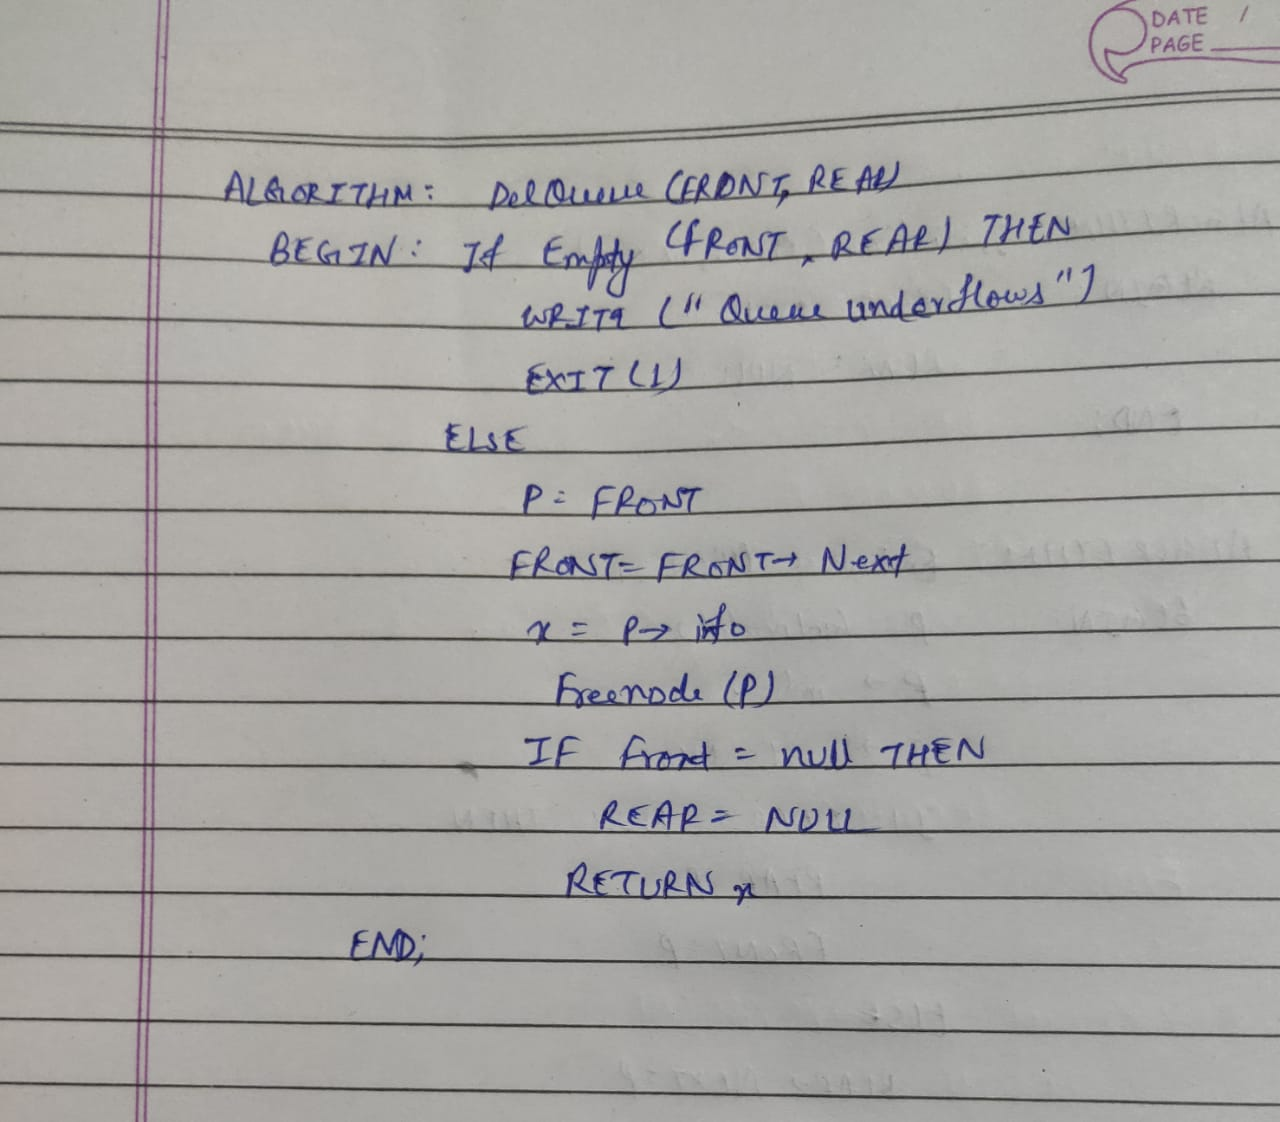 DATE /
PAGE
ALGORITHM: DelQueue (FRONT, REAR)
BEGIN: If Empty (FRONT, REAR) THEN
WRITE ("Queue underflows")
EXIT (1)
ELSE
P = FRONT
FRONT = FRONT → Next
x = P → info
Freenode (P)
IF front = null THEN
REAR = NULL
RETURN x
END;